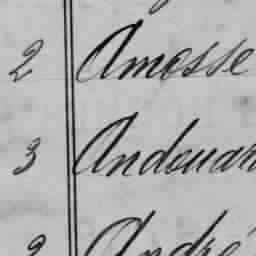 2 Amosse
3 Andouar
2 André